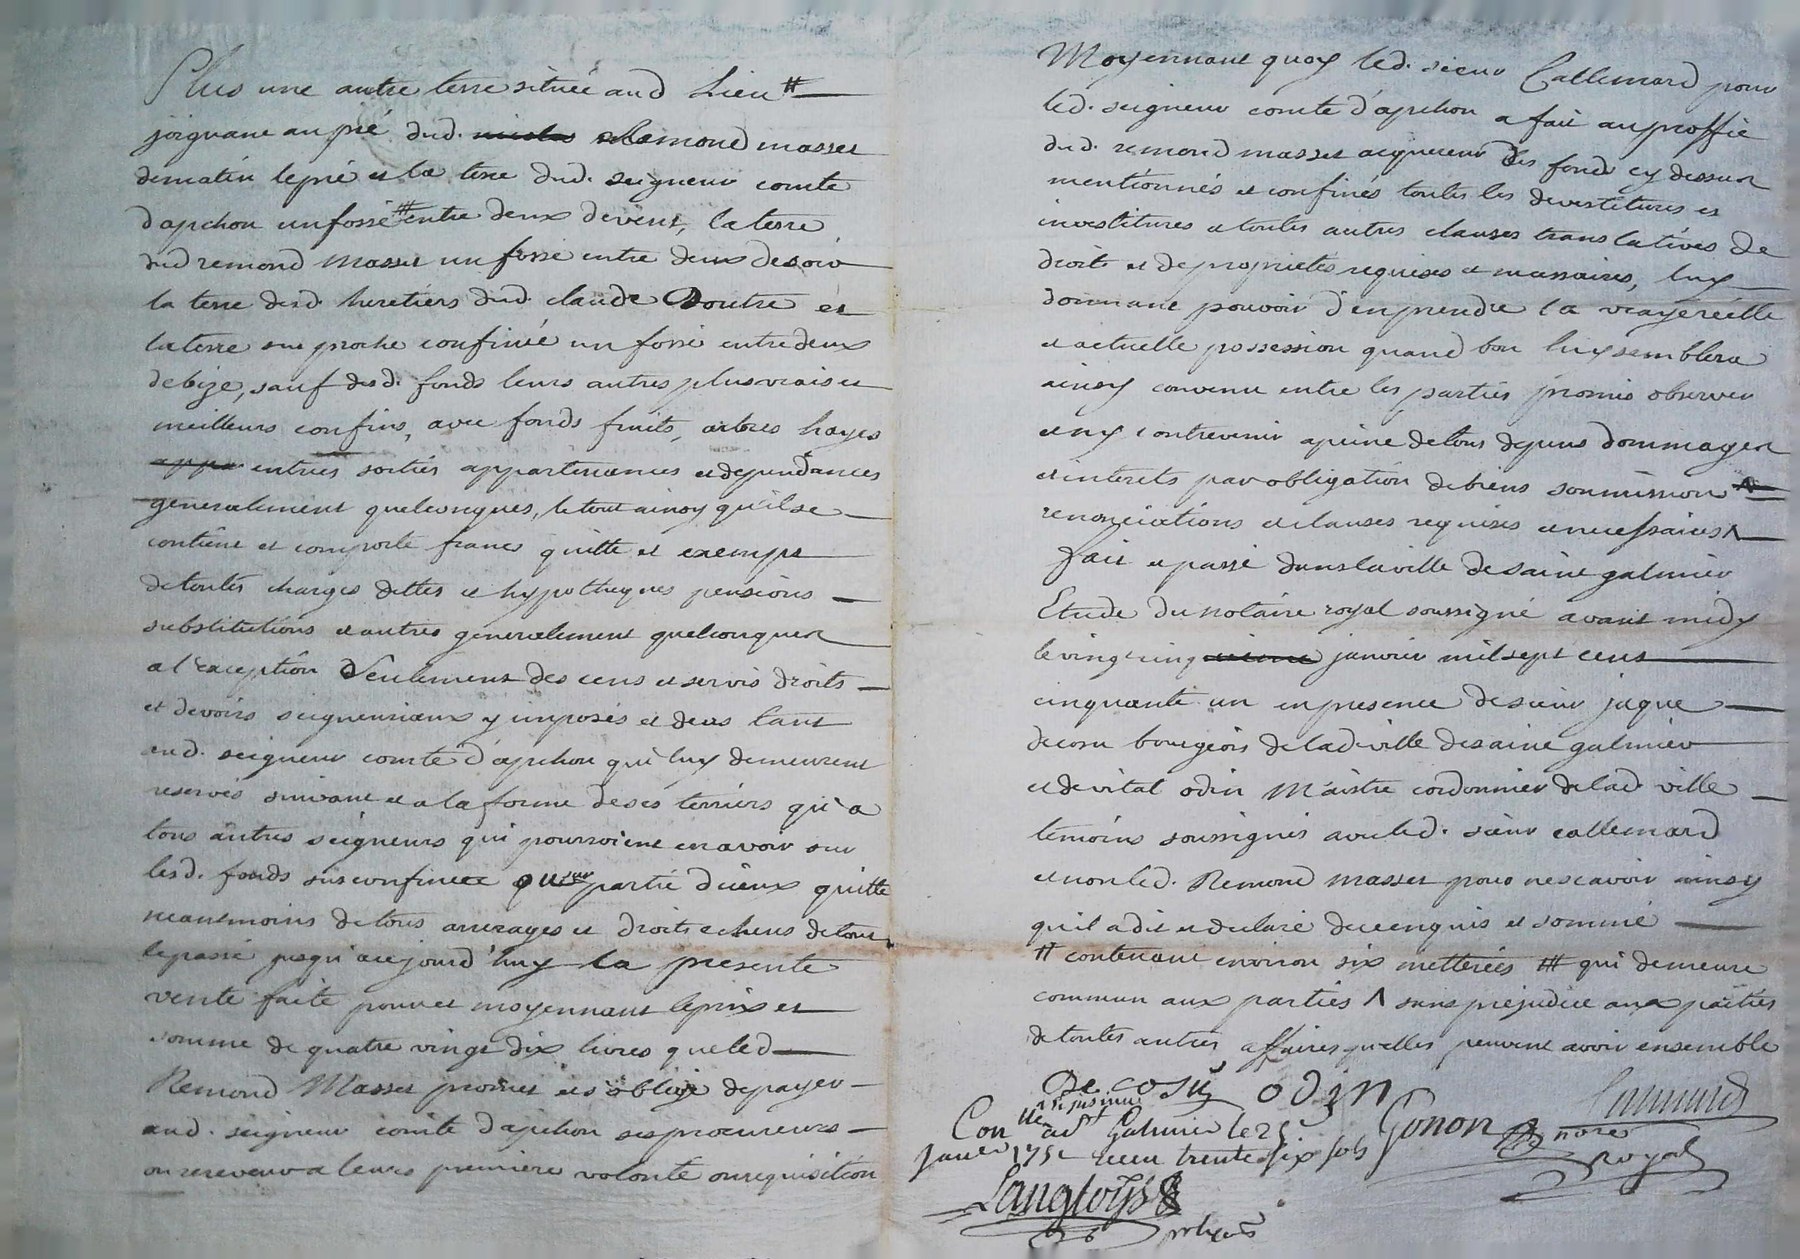 Plus une autre terre située aud Lieu #
joignant au pré dud. Remond masset
de matin le pré et la terre dud. seigneur comte
d'apchon un fossé # entre deux de vent, la terre
dud remond Masset un fossé entre deux de soir
la terre desd. heretiers dud. claude Doutre et
la terre sus proche confinée un fossé entre deux
de bize, sauf desd. fonds leurs autres plus vrais et
meilleurs confins, avec fonds fruits, arbres hayes
entrées sorties appartenances et dependances
generalement quelconques, le tout ainsy qu'il se
contient et comporte franc quitte et exempt
de toutes charges dettes et hypotheques pensions
substitutions et autres generalement quelconques
a l'exception Seulement des cens et servis droits
et devoirs seigneuriaux y imposés et deus tant
aud. seigneur comte d'apchon qui luy demeurent
reservés suivant et a la forme de ses terriers qu'a
tous autres seigneurs qui pourroient en avoir sur
lesd. fonds sus confinés ou sur partie d'iceux quitte
neantmoins de tous arrerages et droits echeus de tout
le passé jusqu'aujourd'huy la presente
vente faite pour et moyennant le prix et
somme de quatre vingt dix livres que led
Remond Masset promet et s'oblige de payer
aud. seigneur comte d'apchon ses procureurs
ou receveur a leurs premiere volonté ou requisition
Moyennant quoy led. sieur Callemard pour
led. seigneur comte d'apchon a fait au proffit
dud. remond masset acquereur des fonds cy dessus
mentionnés et confinés toutes les devestitures et
investitures et toutes autres clauses translatives de
droits et de proprietes requises et necessaires, luy
donnant pouvoir d'en prendre la vraye réélle
et actuelle possession quand bon luy semblera
ainsy convenu entre les parties promis observer
et ny contrevenir a peine de tous depens dommages
et interets par obligation de biens soumission
renonciations et clauses requises et necessaires ^
fait et passé dans la ville de saint galmier
Etude du notaire royal soussigné avant midy
le vingt cinq janvier mil sept cens
cinquante un en presence de sieur jaque
decosu bourgeois de lad ville de saint galmier
et de vital odin Maistre cordonnier de lad ville
temoins soussignés avec led. sieur callemard
et non led. Remond masset pour ne scavoir ainsy
qu'il a dit et declaré de ce enquis et sommé
# contenant environ six metterées # qui demeure
commun aux parties ^ sans prejudice aux parties
de toutes autres affaires qu'elles peuvent avoir ensemble
De cosu odin
Gonon nore Royal
Conlle a St Galmier le 25
janer 1751 receu trente six sols
Langloys